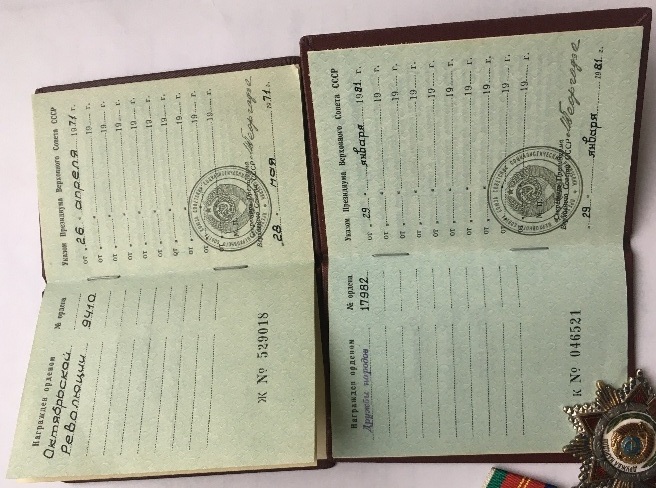 Награжден орденом № ордена
Октябрьской
Революции 9410
Ж № 529018
Указом Президиума Верховного Совета СССР
от „ 26 “ апреля 1971 г.
от „ “ 19 г.
от „ “ 19 г.
от „ “ 19 г.
от „ “ 19 г.
от „ “ 19 г.
от „ “ 19 г.
от „ “ 19 г.
Секретарь Президиума
Верховного Совета СССР
„ 28 “ мая 1971 г.
Награжден орденом № ордена
Дружбы народов 17982
К № 046521
Указом Президиума Верховного Совета СССР
от „ 29 “ января 1981 г.
от „ “ 19 г.
от „ “ 19 г.
от „ “ 19 г.
от „ “ 19 г.
от „ “ 19 г.
от „ “ 19 г.
от „ “ 19 г.
М. П.
Секретарь Президиума
Верховного Совета СССР
„ 29 “ января 1981 г.